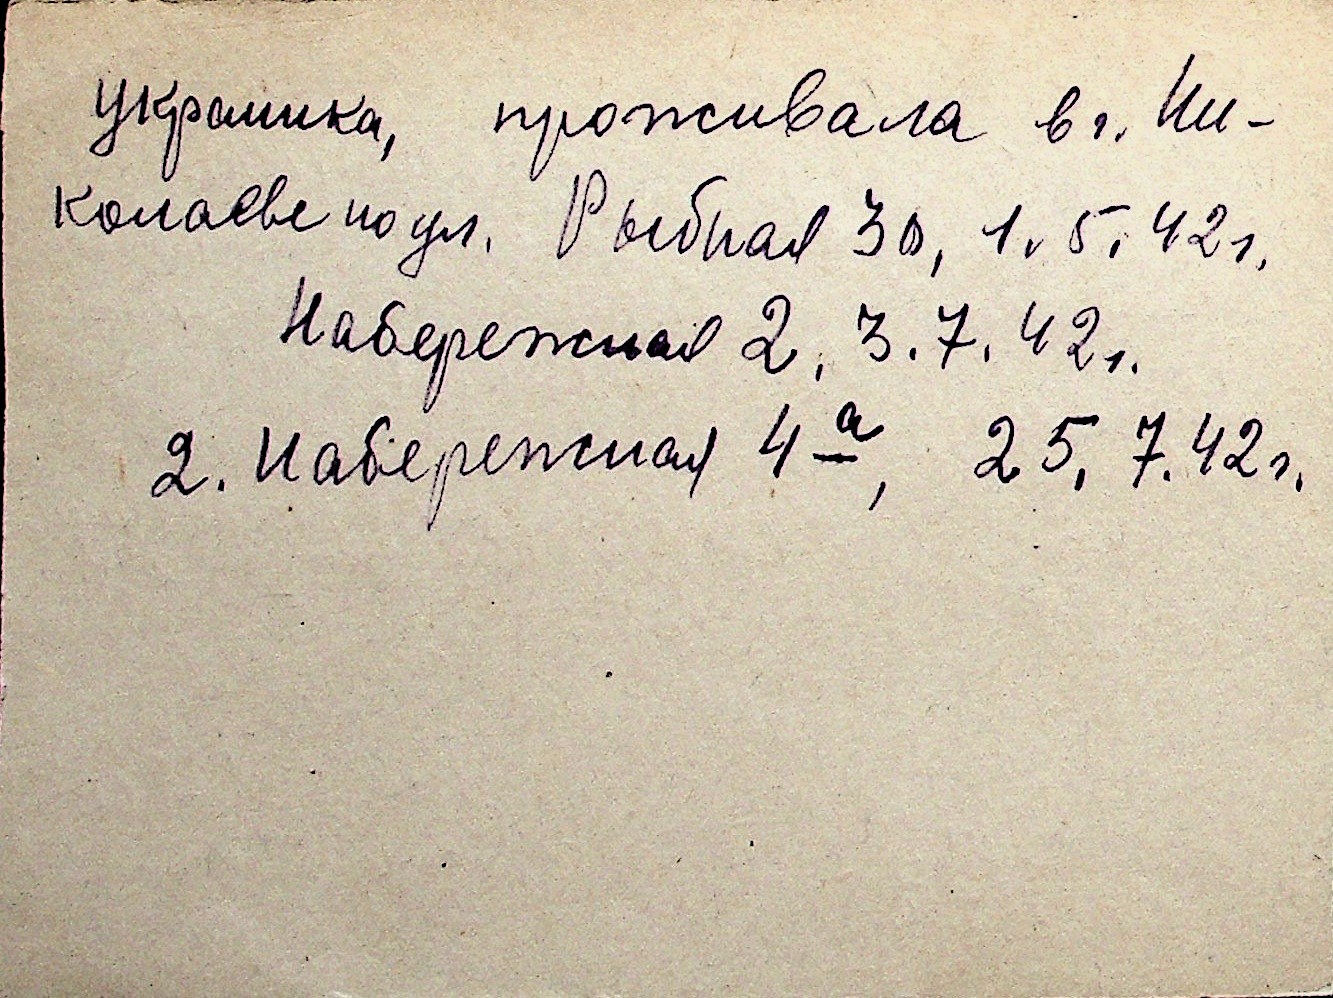 украинка, проживала в г. Ни-
колаеве по ул. Рыбная 30, 1.5.42г.
Набережная 2, 3.7.42г.
2. Набережная 4а, 25.7.42г.